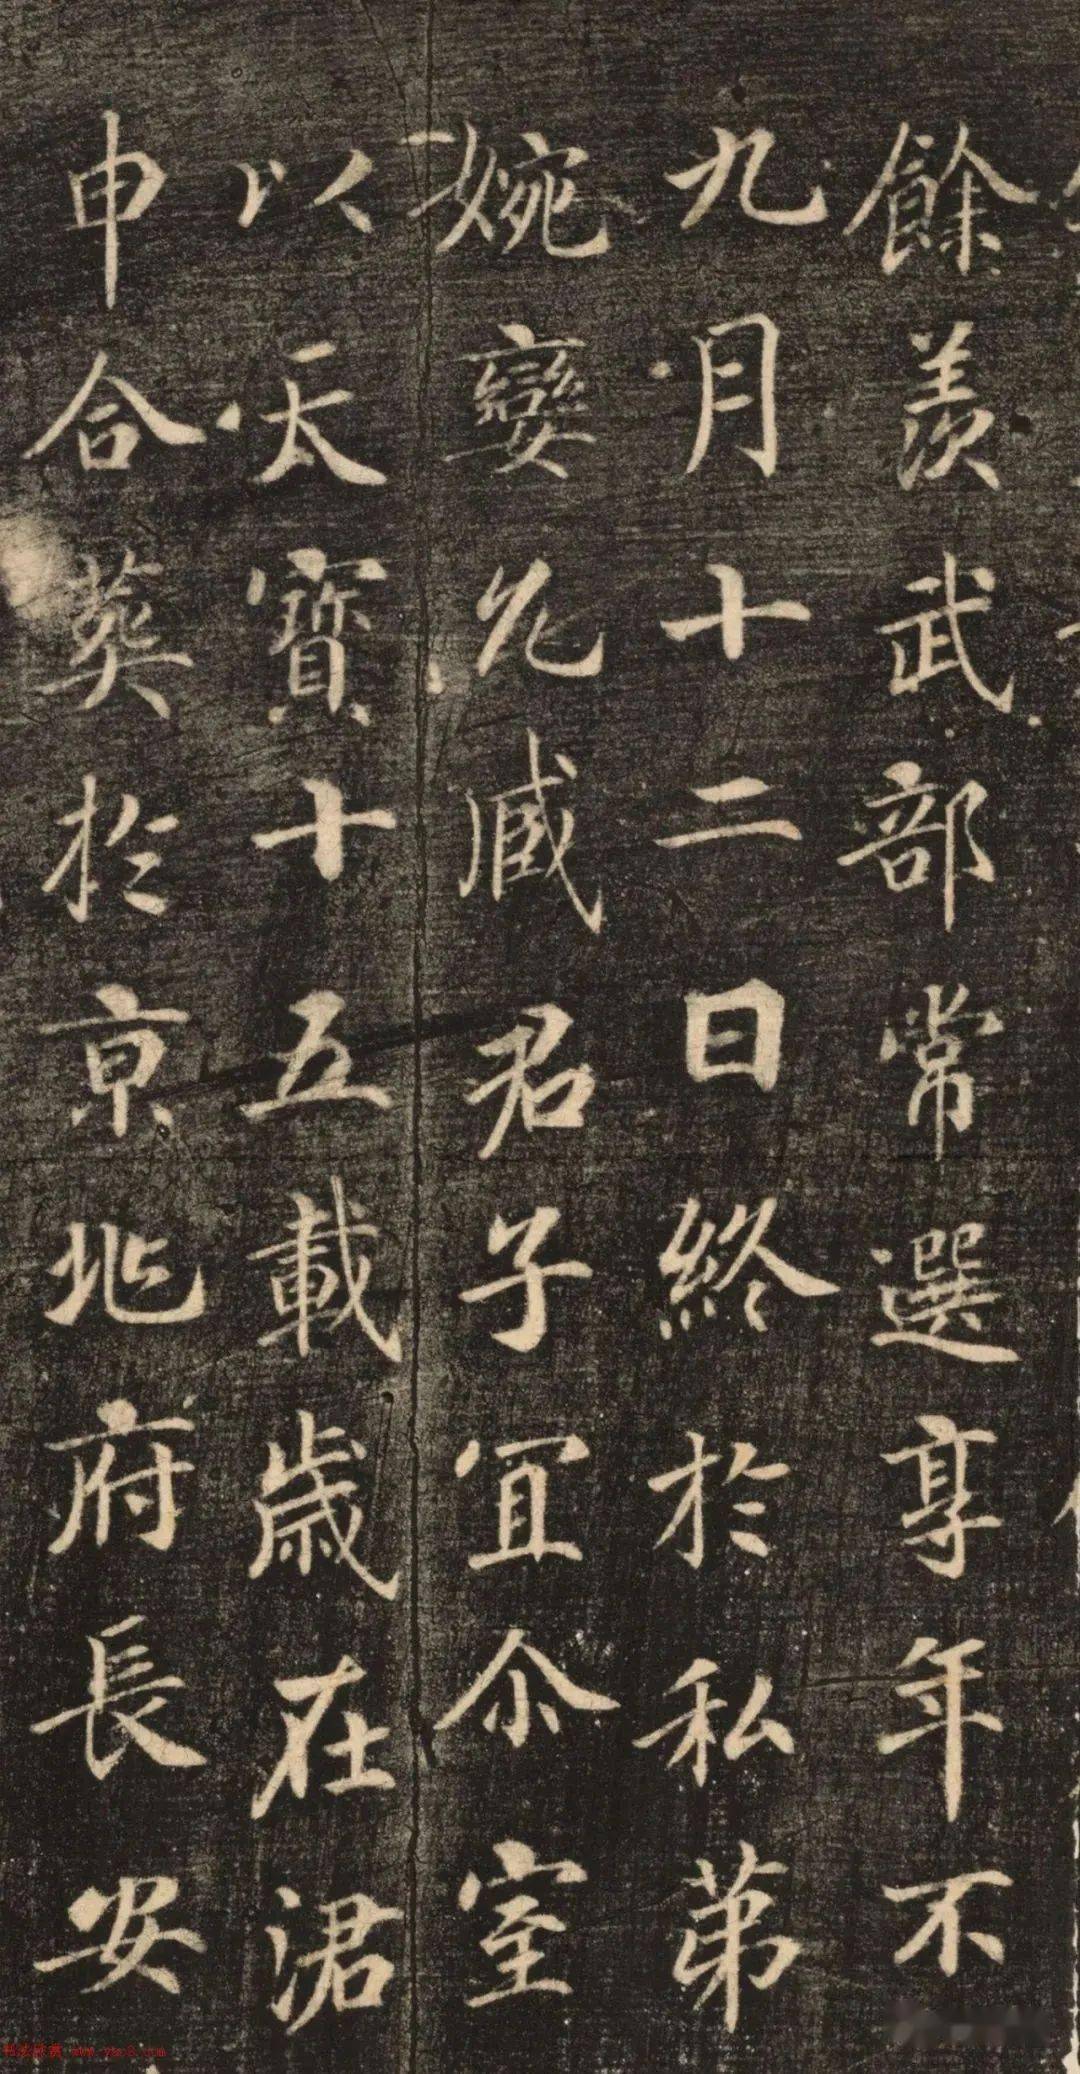 餘羨武部常選享年不
九月十二日終於私第
婉孌允臧君子宜尒室
以天寶十五載歲在涒
申合葬於京兆府長安
www.yac8.com